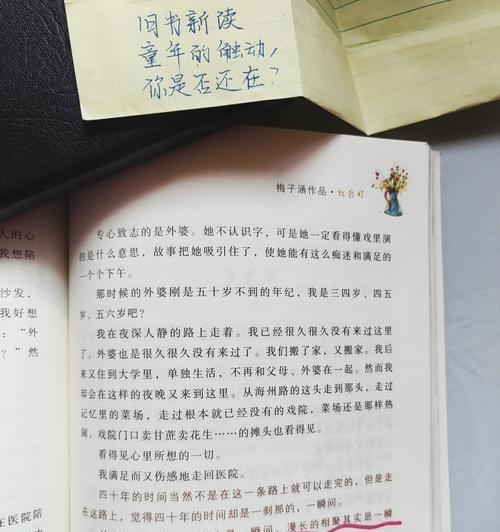 旧书新读
童年的触动,
你是否还在?
梅子涵作品·红台灯
专心致志的是外婆。她不认识字，可是她一定看得懂戏里演
的是什么意思，故事把她吸引住了，使她能有这么痴迷和满足的
一个个下午。
那时候的外婆刚是五十岁不到的年纪，我是三四岁、四五
岁、五六岁吧？
我在夜深人静的路上走着。我已经很久很久没有来过这里
了。外婆也是很久很久没有来过了。我们搬了家，又搬家。我后
来又住到大学里，单独生活，不再和父母、外婆在一起。然而我
却会在这样的夜晚又来到这里。从海州路的这头走到那头，走过
记忆里的菜场，走过根本就已经没有的戏院，菜场还是那样热
闹，戏院门口卖甘蔗卖花生……的摊头也看得见。
看得见心里所想的一切。
我满足而又伤感地走回医院。
四十年的时间当然不是在这一条路上就可以走完的，但是走
在这路上，觉得四十年的时间却是一刹那的，一瞬间。
一瞬间，漫长的相聚其实是一瞬
人的心
我想陪
沙发，
我好想
：“外
？”然
医院陪